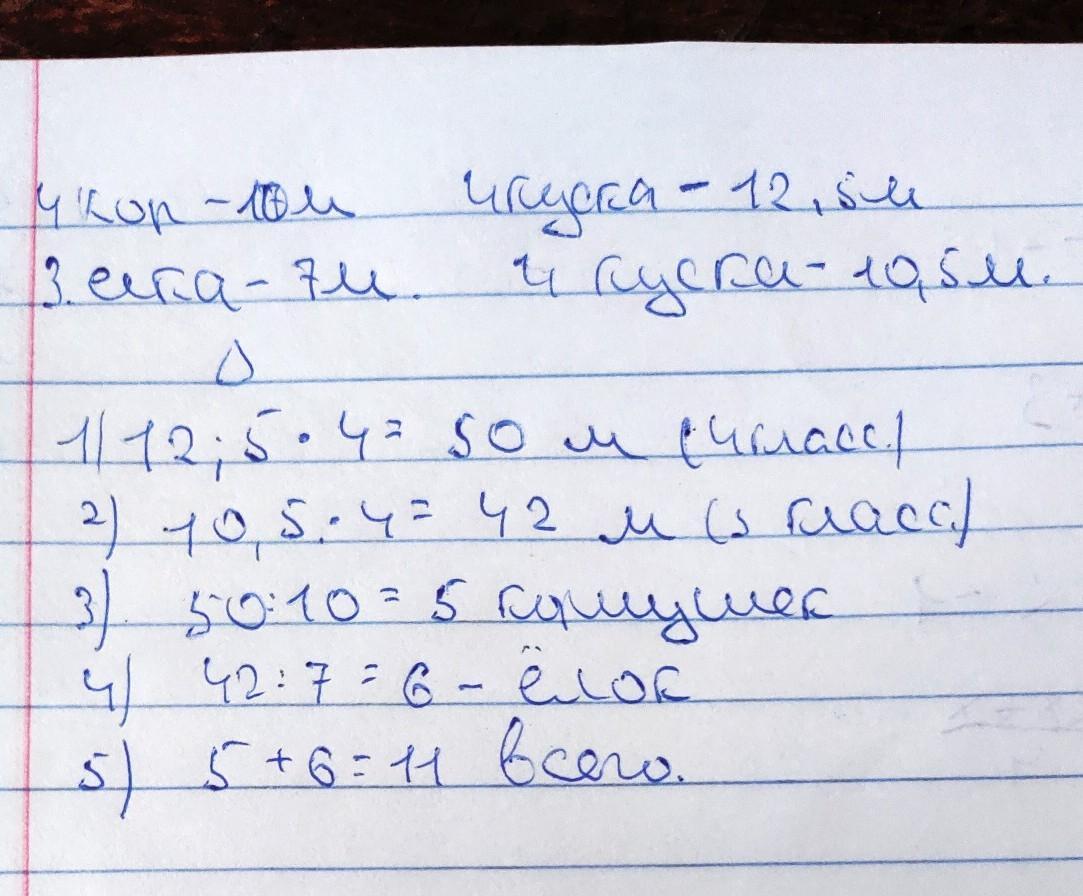 4 кор - 10м 4 куска - 12,5м
3. елка - 7м. 4 куска - 10,5м.
1) 12,5 · 4 = 50 м (4 класс)
2) 10,5 · 4 = 42 м (3 класс)
3) 50:10 = 5 кормушек
4) 42:7 = 6 - ёлок
5) 5 + 6 = 11 всего.